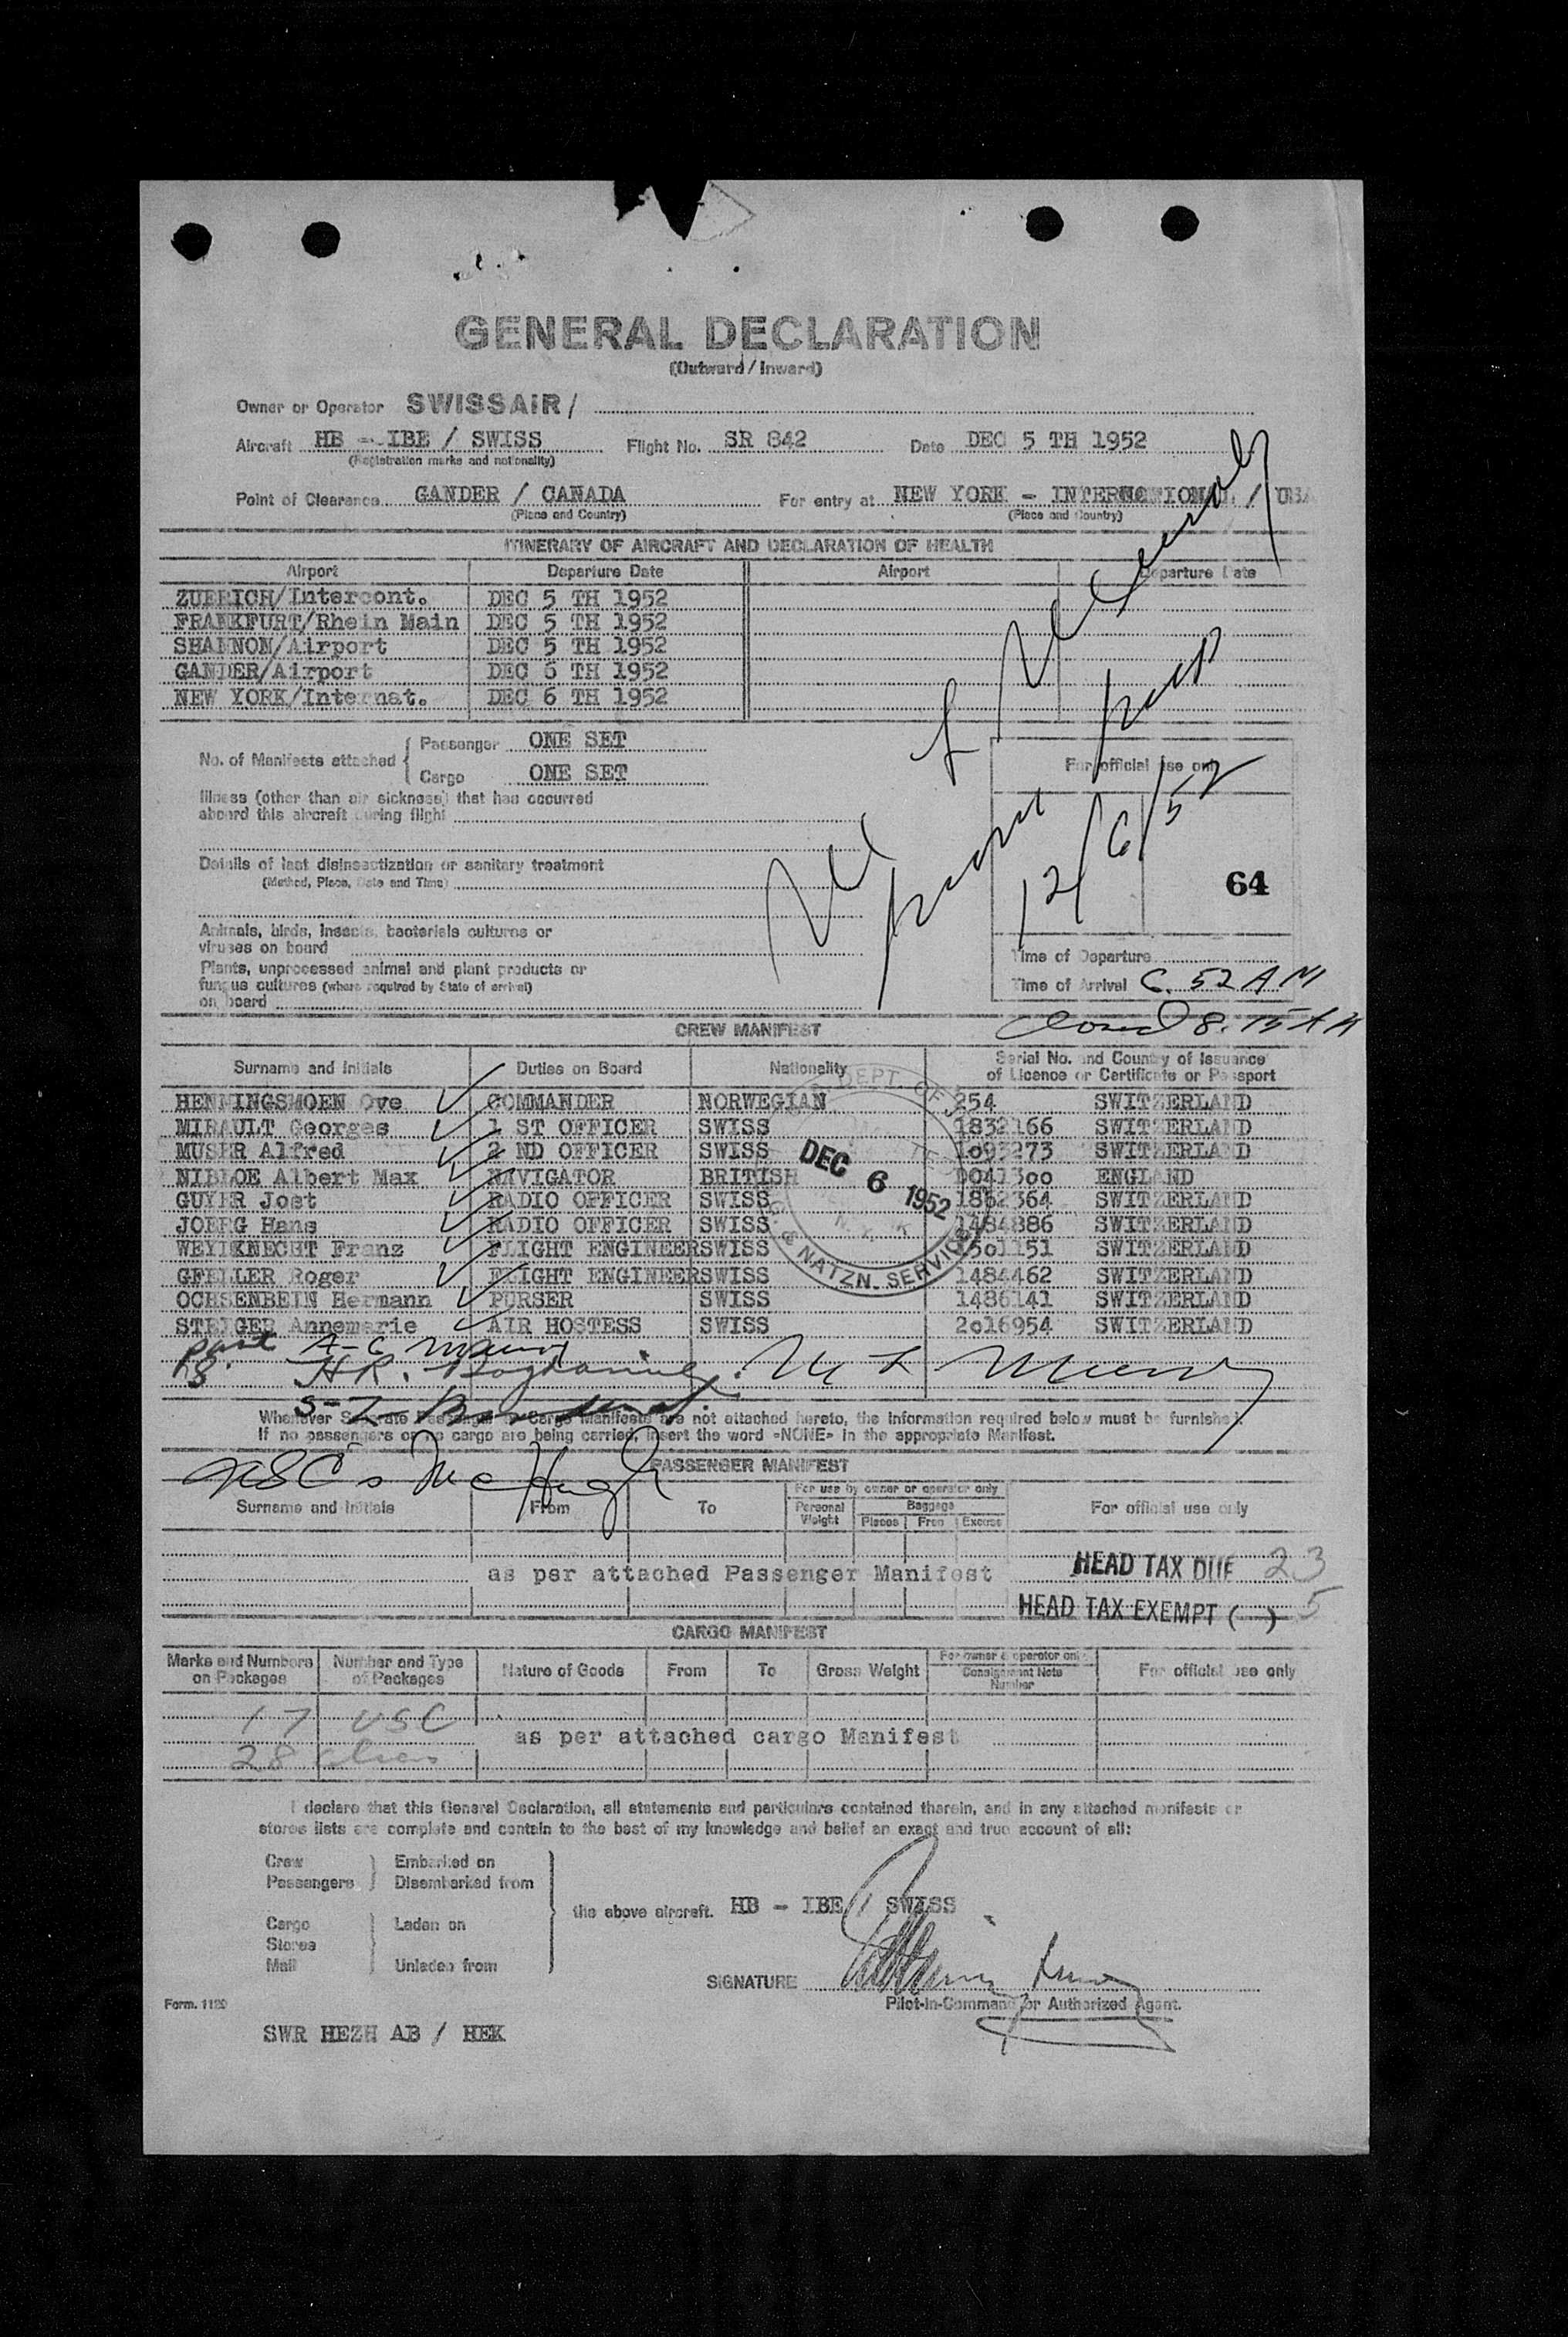 GENERAL DECLARATION
(Outward / Inward)
Owner or Operator SWISSAIR /
Aircraft HB - IBE / SWISS Flight No. SR 842 Date DEC 5 TH 1952
(Registration marks and nationality)
Point of Clearance GANDER / CANADA For entry at NEW YORK - INTERNATIONAL / USA
(Place and Country) (Place and Country)
ITINERARY OF AIRCRAFT AND DECLARATION OF HEALTH
Airport Departure Date Airport Departure Date
ZUERICH/Intercont. DEC 5 TH 1952
FRANKFURT/Rhein Main DEC 5 TH 1952
SHANNON/Airport DEC 5 TH 1952
GANDER/Airport DEC 6 TH 1952
NEW YORK/Internat. DEC 6 TH 1952
No. of Manifests attached
Passenger ONE SET
Cargo ONE SET
For official use only
Illness (other than air sickness) that has occurred
aboard this aircraft during flight
12/6/52
Details of last disinsectization or sanitary treatment
(Method, Place, Date and Time)
64
Animals, birds, insects, bacteriale cultures or
viruses on board
Time of Departure
Plants, unprocessed animal and plant products or
fungus cultures (where required by State of arrival)
on board
Time of Arrival 6.52 AM
8.15 AM
CREW MANIFEST
Surname and Initials Duties on Board Nationality Serial No. and Country of Issuance
of Licence or Certificate or Passport
HENNINGSMOEN Ove COMMANDER NORWEGIAN 254 SWITZERLAND
MIRAULT Georges 1 ST OFFICER SWISS 1832166 SWITZERLAND
MUSER Alfred 2 ND OFFICER SWISS 1o93273 SWITZERLAND
NIBLOE Albert Max NAVIGATOR BRITISH D041300 ENGLAND
GUYER Jost RADIO OFFICER SWISS 1862364 SWITZERLAND
JOERG Hans RADIO OFFICER SWISS 1484886 SWITZERLAND
WEYKNECHT Franz FLIGHT ENGINEER SWISS 15o1151 SWITZERLAND
GFELLER Roger FLIGHT ENGINEER SWISS 1484462 SWITZERLAND
OCHSENBEIN Hermann PURSER SWISS 1486141 SWITZERLAND
STEIGER Annemarie AIR HOSTESS SWISS 2o16954 SWITZERLAND
DEPT. OF
DEC 6 1952
& NATZN. SERVICE
Whenever Separate Passenger or Cargo Manifests are not attached hereto, the information required below must be furnished.
If no passengers or no cargo are being carried, insert the word «NONE» in the appropriate Manifest.
USC's McHugh
PASSENGER MANIFEST
Surname and Initials From To For use by owner or operator only For official use only
Personal Weight Baggage
Pieces Free Excess
as per attached Passenger Manifest
HEAD TAX DUE 23
HEAD TAX EXEMPT ( ) 5
CARGO MANIFEST
Marks and Numbers on Packages Number and Type of Packages Nature of Goods From To Gross Weight For owner & operator only Consignment Note Number For official use only
17 USC
as per attached cargo Manifest
28 aliens
I declare that this General Declaration, all statements and particulars contained therein, and in any attached manifests or
stores lists are complete and contain to the best of my knowledge and belief an exact and true account of all:
Crew Embarked on
Passengers Disembarked from
the above aircraft. HB - IBE / SWISS
Cargo Laden on
Stores
Mail Unladen from
SIGNATURE
Pilot-in-Command or Authorized Agent.
Form. 1120
SWR HEZH AB / HEK